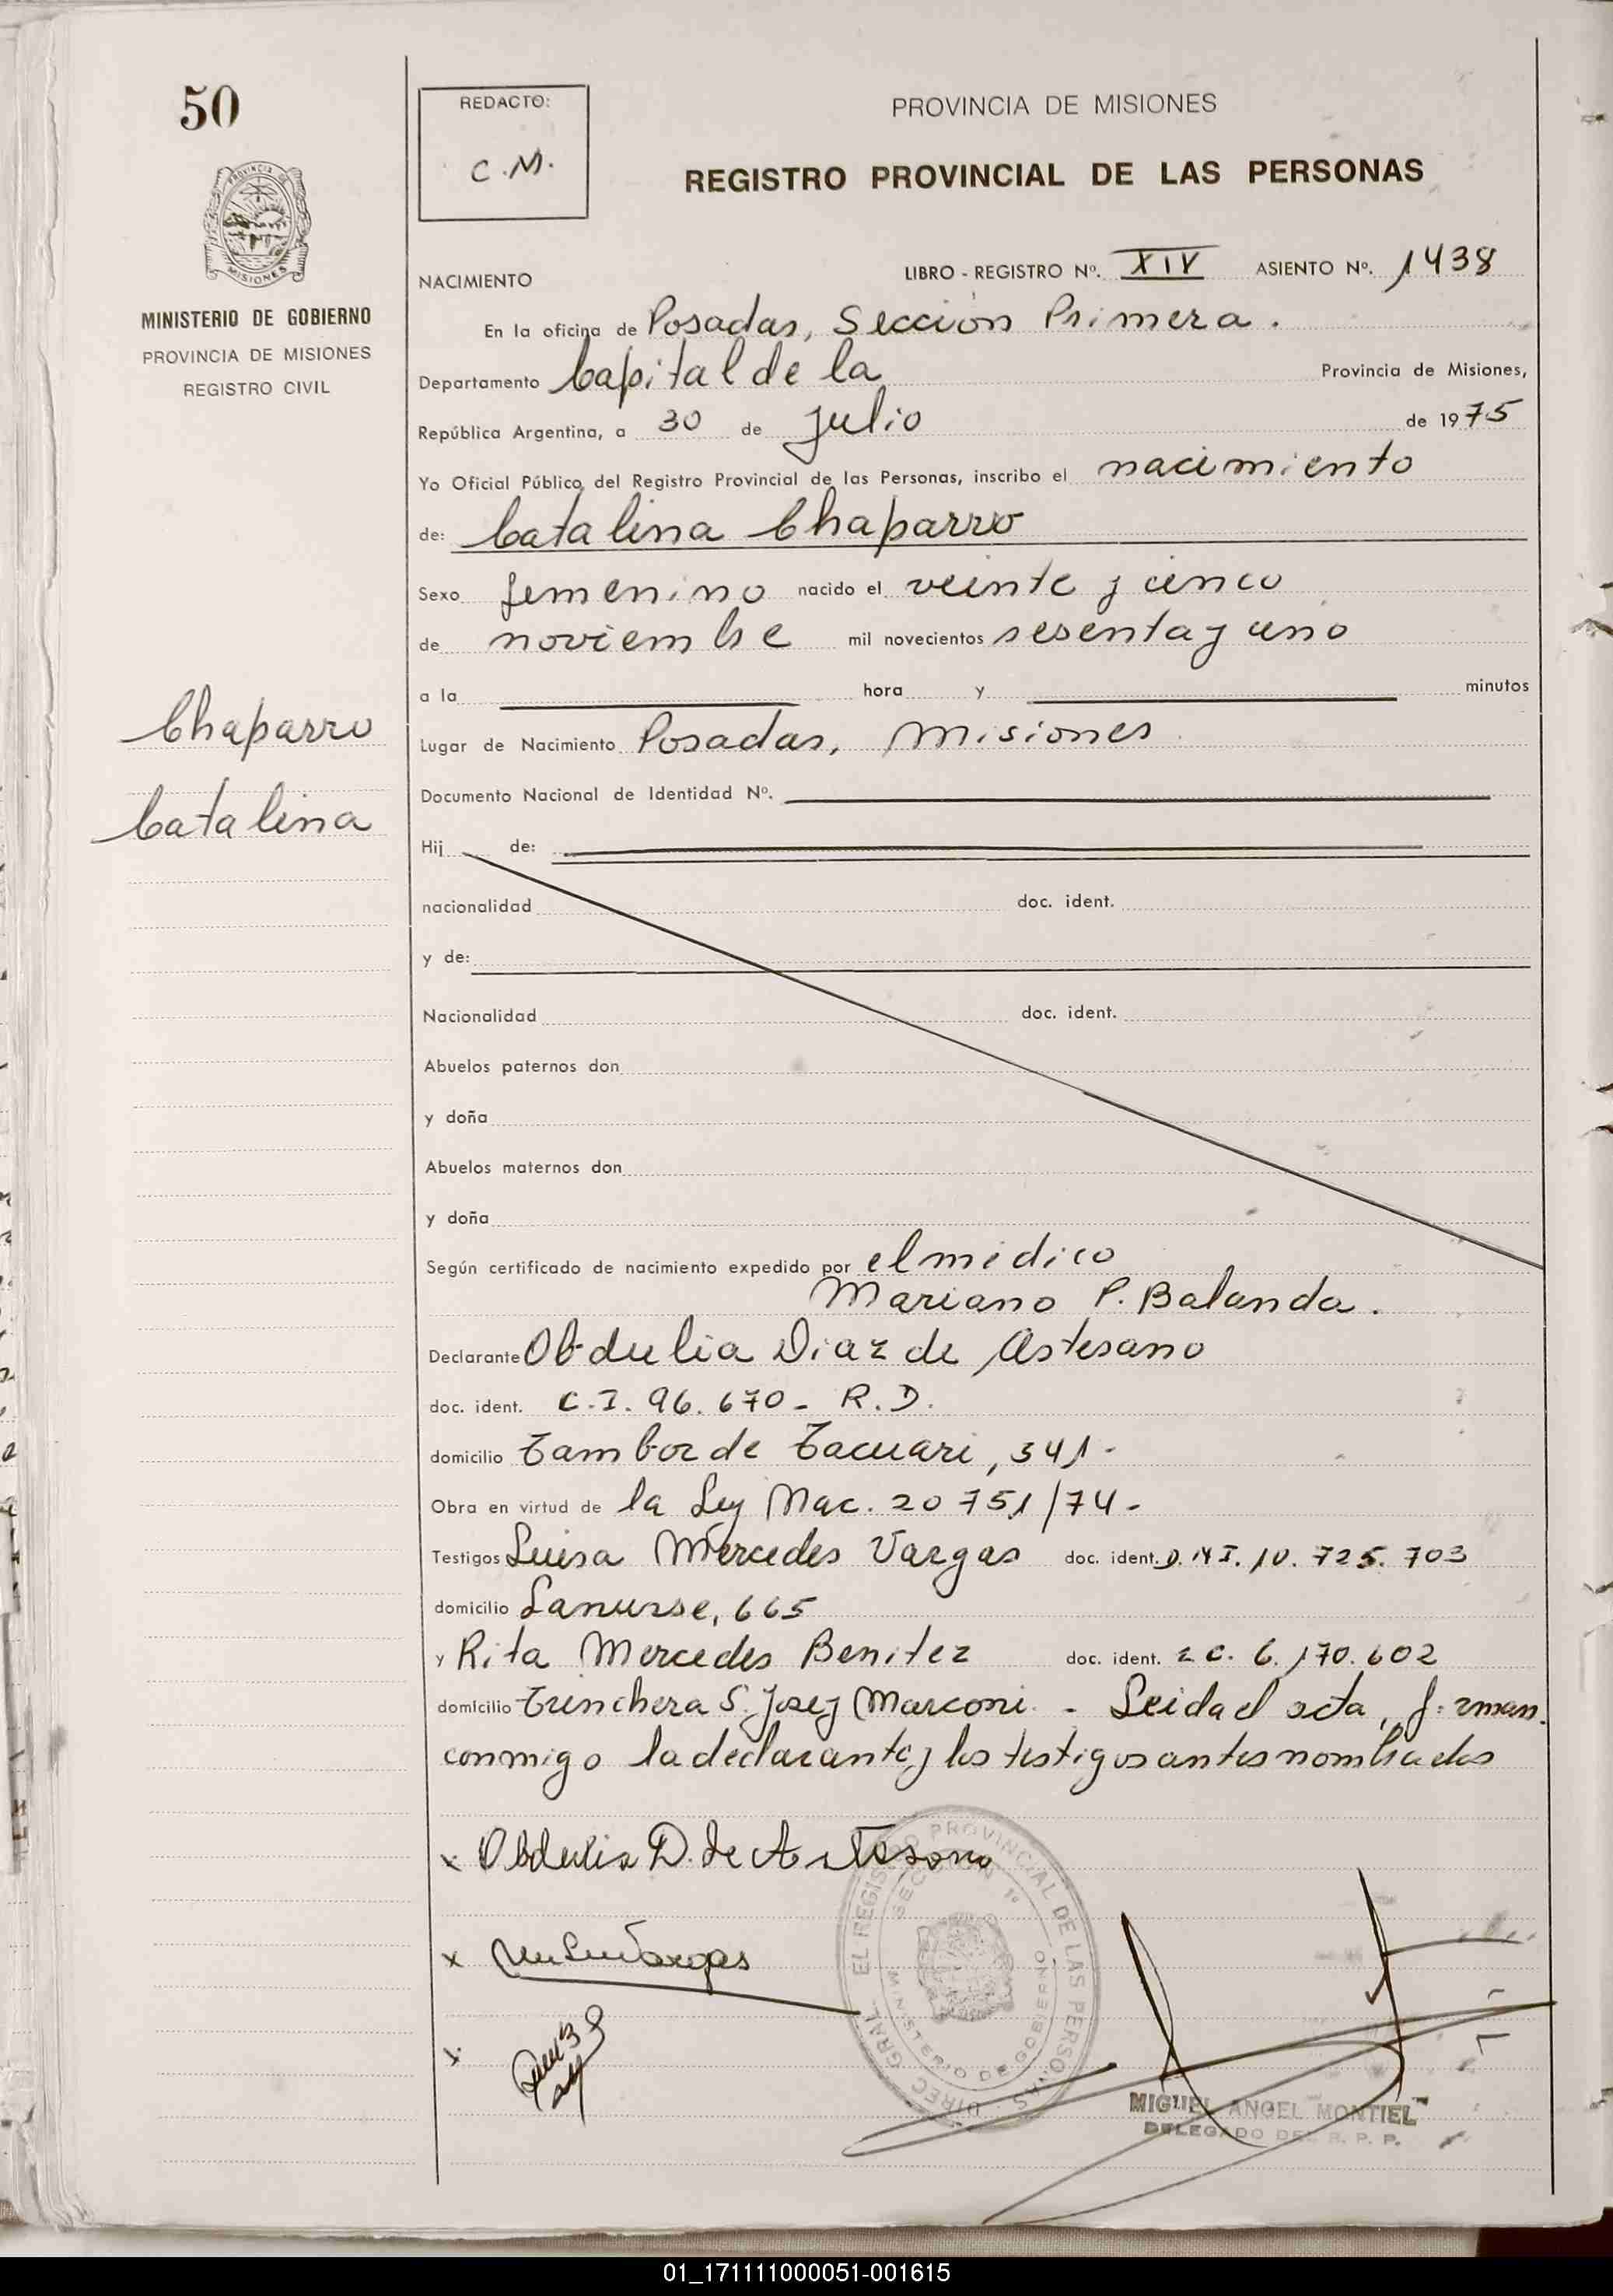 50
REDACTO:
C.M.
PROVINCIA DE MISIONES
REGISTRO PROVINCIAL DE LAS PERSONAS
PROVINCIA DE
MISIONES
MINISTERIO DE GOBIERNO
PROVINCIA DE MISIONES
REGISTRO CIVIL
NACIMIENTO
LIBRO - REGISTRO Nº. XIV ASIENTO Nº. 1438
En la oficina de Posadas, Sección Primera.
Departamento Capital de la Provincia de Misiones,
República Argentina, a 30 de Julio de 1975
Yo Oficial Público del Registro Provincial de las Personas, inscribo el nacimiento
de: Catalina Chaparro
Sexo femenino nacido el veinte y cinco
de noviembre mil novecientos sesenta y uno
a la hora y minutos
Chaparro
Catalina
Lugar de Nacimiento Posadas, Misiones
Documento Nacional de Identidad Nº.
Hij de:
nacionalidad doc. ident.
y de:
Nacionalidad doc. ident.
Abuelos paternos don
y doña
Abuelos maternos don
y doña
Según certificado de nacimiento expedido por el médico
Mariano P. Balanda.
Declarante Obdulia Diaz de Astesano
doc. ident. C.I. 96.670- R.D.
domicilio Tambor de Tacuari, 341-
Obra en virtud de la Ley Nac. 20751/74-
Testigos Luisa Mercedes Vargas doc. ident. D.N.I. 10.725.703
domicilio Lanusse, 665
y Rita Mercedes Benitez doc. ident. L C. 6.170.602
domicilio Trinchera S. José y Marconi. - Leida el acta, firman
conmigo la declarante y los testigos antes nombrados
x Obdulia D. de Astesano
x Vargas
x
DIREC. GRAL. EL REGISTRO PROVINCIAL DE LAS PERSONAS
SECCION 1º
MINISTERIO DE GOBIERNO
MIGUEL ANGEL MONTIEL
DELEGADO DEL R. P. P.
01_171111000051-001615